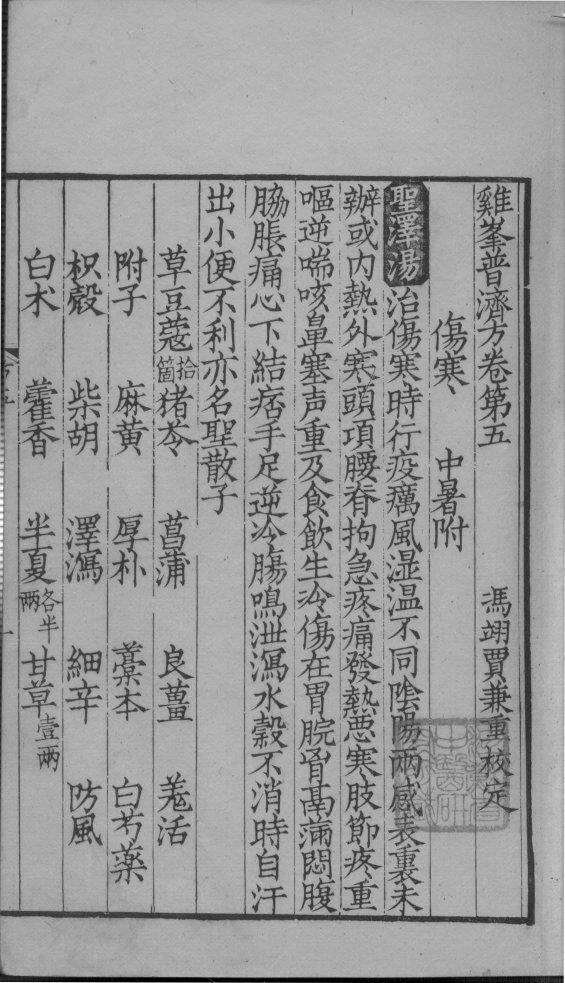 雞峯普濟方卷第五　馮翊賈兼重校定
傷寒　中暑附
聖澤湯治傷寒時行疫癘風湿温不同陰陽兩感表裏未
辦或内熱外寒頭項腰脊拘急疼痛發熱惡寒肢節疼重
嘔逆喘咳鼻塞声重及食飲生冷傷在胃脘胷鬲满悶腹
脇脹痛心下結痞手足逆冷腸鳴泄瀉水穀不消時自汗
出小便不利亦名聖散子
草豆蔻拾箇　猪苓　菖蒲　良薑　羗活
附子　麻黄　厚朴　藁本　白芍藥
枳殼　柴胡　澤瀉　細辛　防風
白术　藿香　半夏各半兩　甘草壹兩